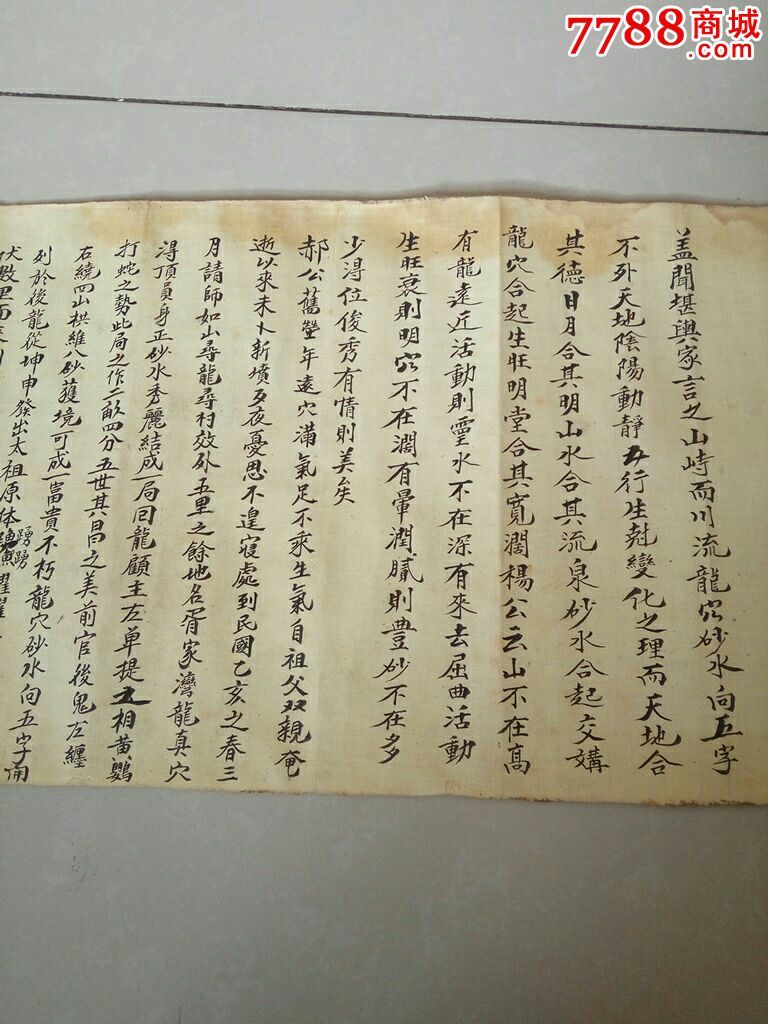 盖聞堪輿家言之山峙而川流龍穴砂水向五字
不外天地陰陽動靜五行生尅變化之理而天地合
其德日月合其明山水合其流泉砂水合起交媾
龍穴合起生旺明堂合其寬濶楊公云山不在高
有龍遠近活動則靈水不在深有來去屈曲活動
生旺衰則明穴不在濶有暈潤膩則豊砂不在多
少淂位俊秀有情則美矣
郝公舊塋年遠穴滿氣足不乘生氣自祖父双親奄
逝以來未卜新墳夕夜憂思不遑寢處到民國乙亥之春三
月請師如山尋龍尋村效外五里之餘地名胥家灣龍真穴
淂頂員身正砂水秀麗結成一局回龍顧主左单提五相黄鷃
打蛇之势此局之作二畝四分五世其昌之美前官後鬼左纏
右繞四山栱維八砂護境可成一富貴不朽龍穴砂水向五字開
列於後龍從坤申發出太祖原体踴踴
伏數里而
7788商城
.com